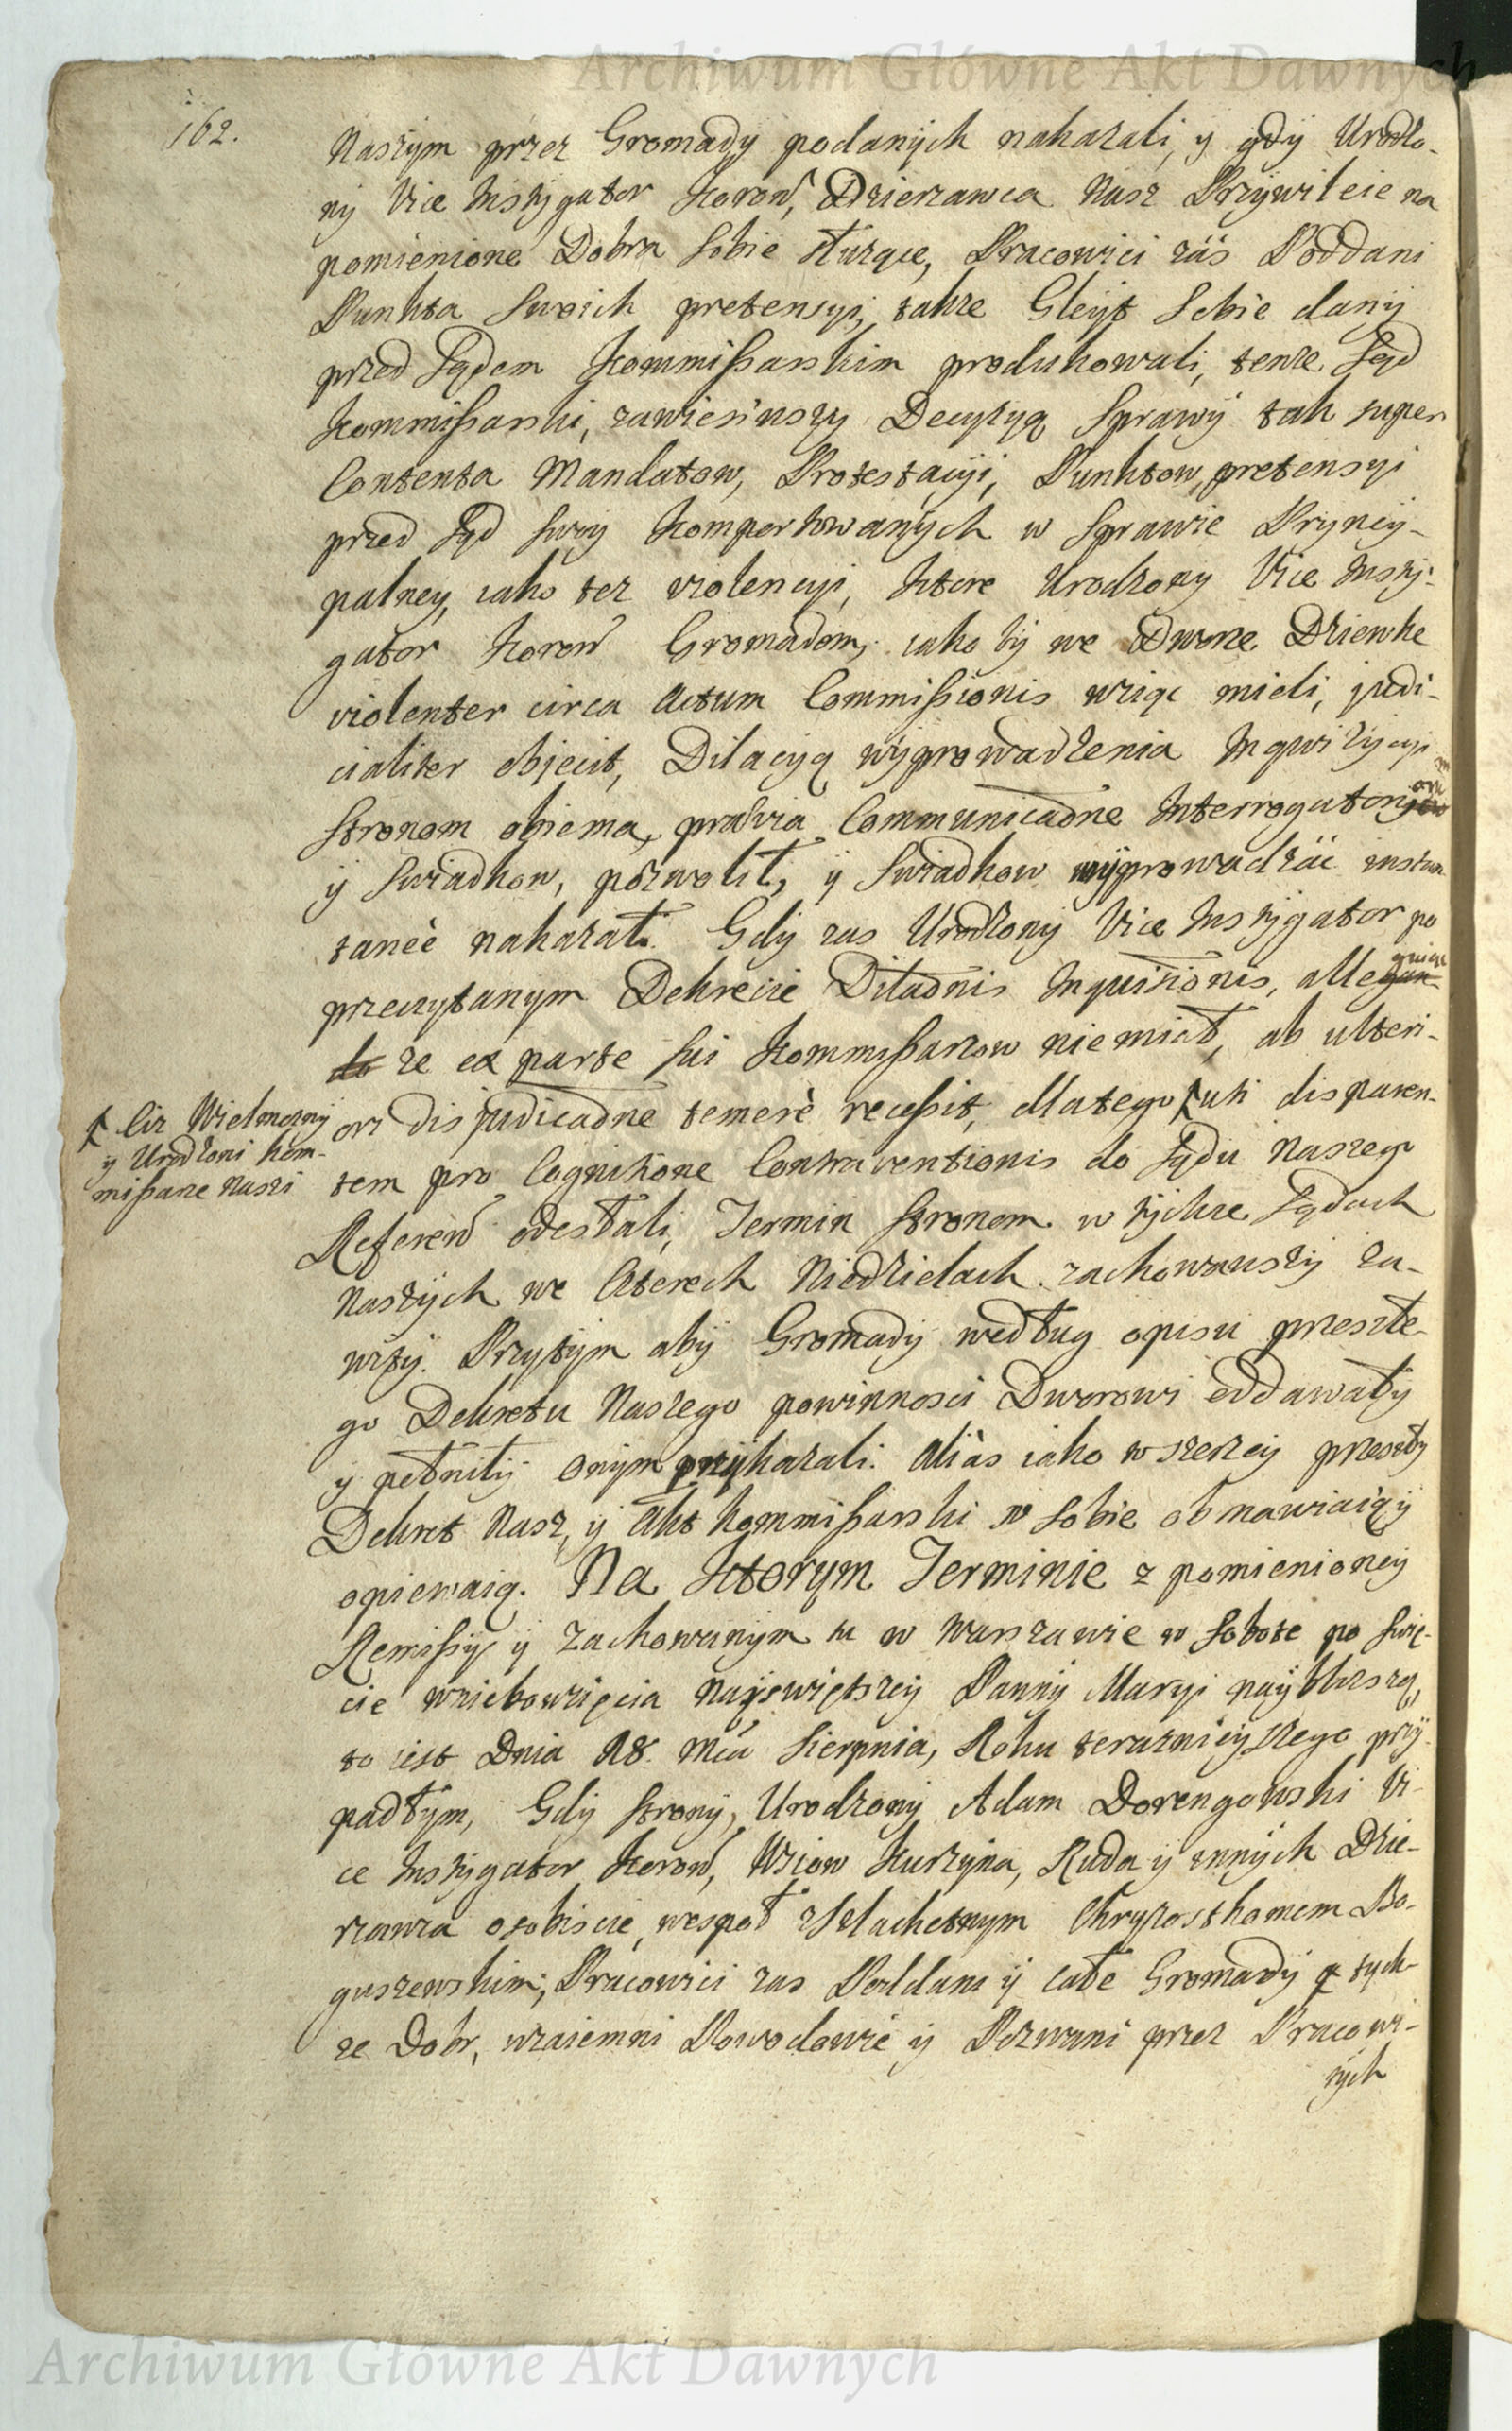 Archiwum Główne Akt Dawnych
162.
Naszym przez Gromady podanych nakazali, y gdy Urodzo-
ny Vice Instygator Koron, Dzierzawca Nasz Przywileie na
pomienione Dobra sobie słuzące, Pracowici zás Poddani
Punkta swoich pretensyi, takze Gleyt sobie dany
przed Sądem Kommissarskim produkowali, tenze Sąd
Kommissarski, zawiesiwszy Decyzyą sprawy tak super
Contenta Mandatow, Protestacyi, Punktow, pretensyi
przed Sąd swoy komportowanych w sprawie Pryncy-
palney, iako tez violencyi, ktore Urodzony Vice Insty-
gator Koron Gromadom, iako by we Dworze Dziewke
violenter circa Actum Commissionis wziąc mieli, judi-
cialiter objecit, Dilacyą wyprowadzenia Inqwizycyi
stronom obiema, prævia Communicaōne Interrogatory
orum
y swiadkow, pozwolił, y swiadkow wyprowadzác instan
taneè nakazał. Gdy zas Urodzony Vice Instygator po
przeczytanym Dekrecie Dilaōnis Inquisitionis, allegan-
guiąc
do ze ex parte sui Kommissarzow niemiał, ab ulteri-
ori disjudicaōne temerè recessit, dlatego uti disparen-
Ciz Wielmozny
y Urodzoni Kom-
missarze Nasi
tem pro Cognitione Contraventionis do Sądu Naszego
Referen odesłali, Termin stronom w tychze Sądach
Naszych we Czterech Niedzielach zachowawszy za-
wity. Przytym aby Gromady według opisu przeszłe-
go Dekretu Naszego powinnosci Dworowi oddawały
y pełniły onym przykazali. Aliàs iako w szerzey przeszły
Dekret Nasz, y Akt Kommissarski w sobie obmawiaiący
opiewaią. Na Ktorym Terminie z pomienioney
Remissyi y zachowanym tu w Warszawie w Sobote po Swię-
cie wniebowzięcia Nayswiętszey Panny Maryi naybliszą,
to iest Dnia 18. Mca Sierpnia, Roku teraznieyszego przy-
padłym, Gdy strony, Urodzony Adam Dorengowski Vi-
ce Instygator Koron, Wsiow Kurzyna, Ruda y innych Dzie-
rzawca osobiscie, wespoł z Szlachetnym Chryzosthomem Bo-
guszewskim; Pracowici zas Poddani y całe Gromady z tych-
ze Dobr, wzaiemni Powodowie y Pozwani przez Pracowi-
tych
Archiwum Główne Akt Dawnych